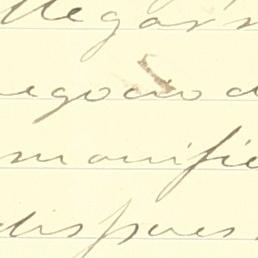 llegar
negocio d
manifie
dispues